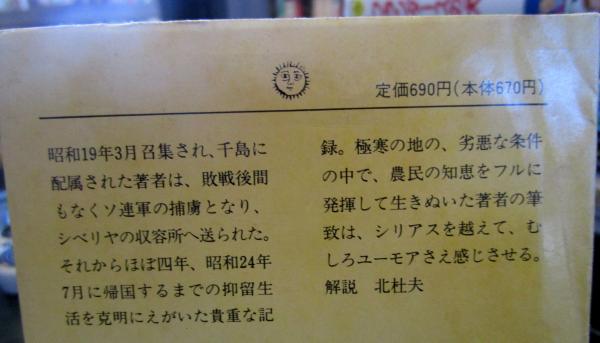 定価690円(本体670円)
昭和19年3月召集され、千島に
配属された著者は、敗戦後間
もなくソ連軍の捕虜となり、
シベリヤの収容所へ送られた。
それからほぼ四年、昭和24年
7月に帰国するまでの抑留生
活を克明にえがいた貴重な記
録。極寒の地の、劣悪な条件
の中で、農民の知恵をフルに
発揮して生きぬいた著者の筆
致は、シリアスを越えて、む
しろユーモアさえ感じさせる。
解説 北杜夫